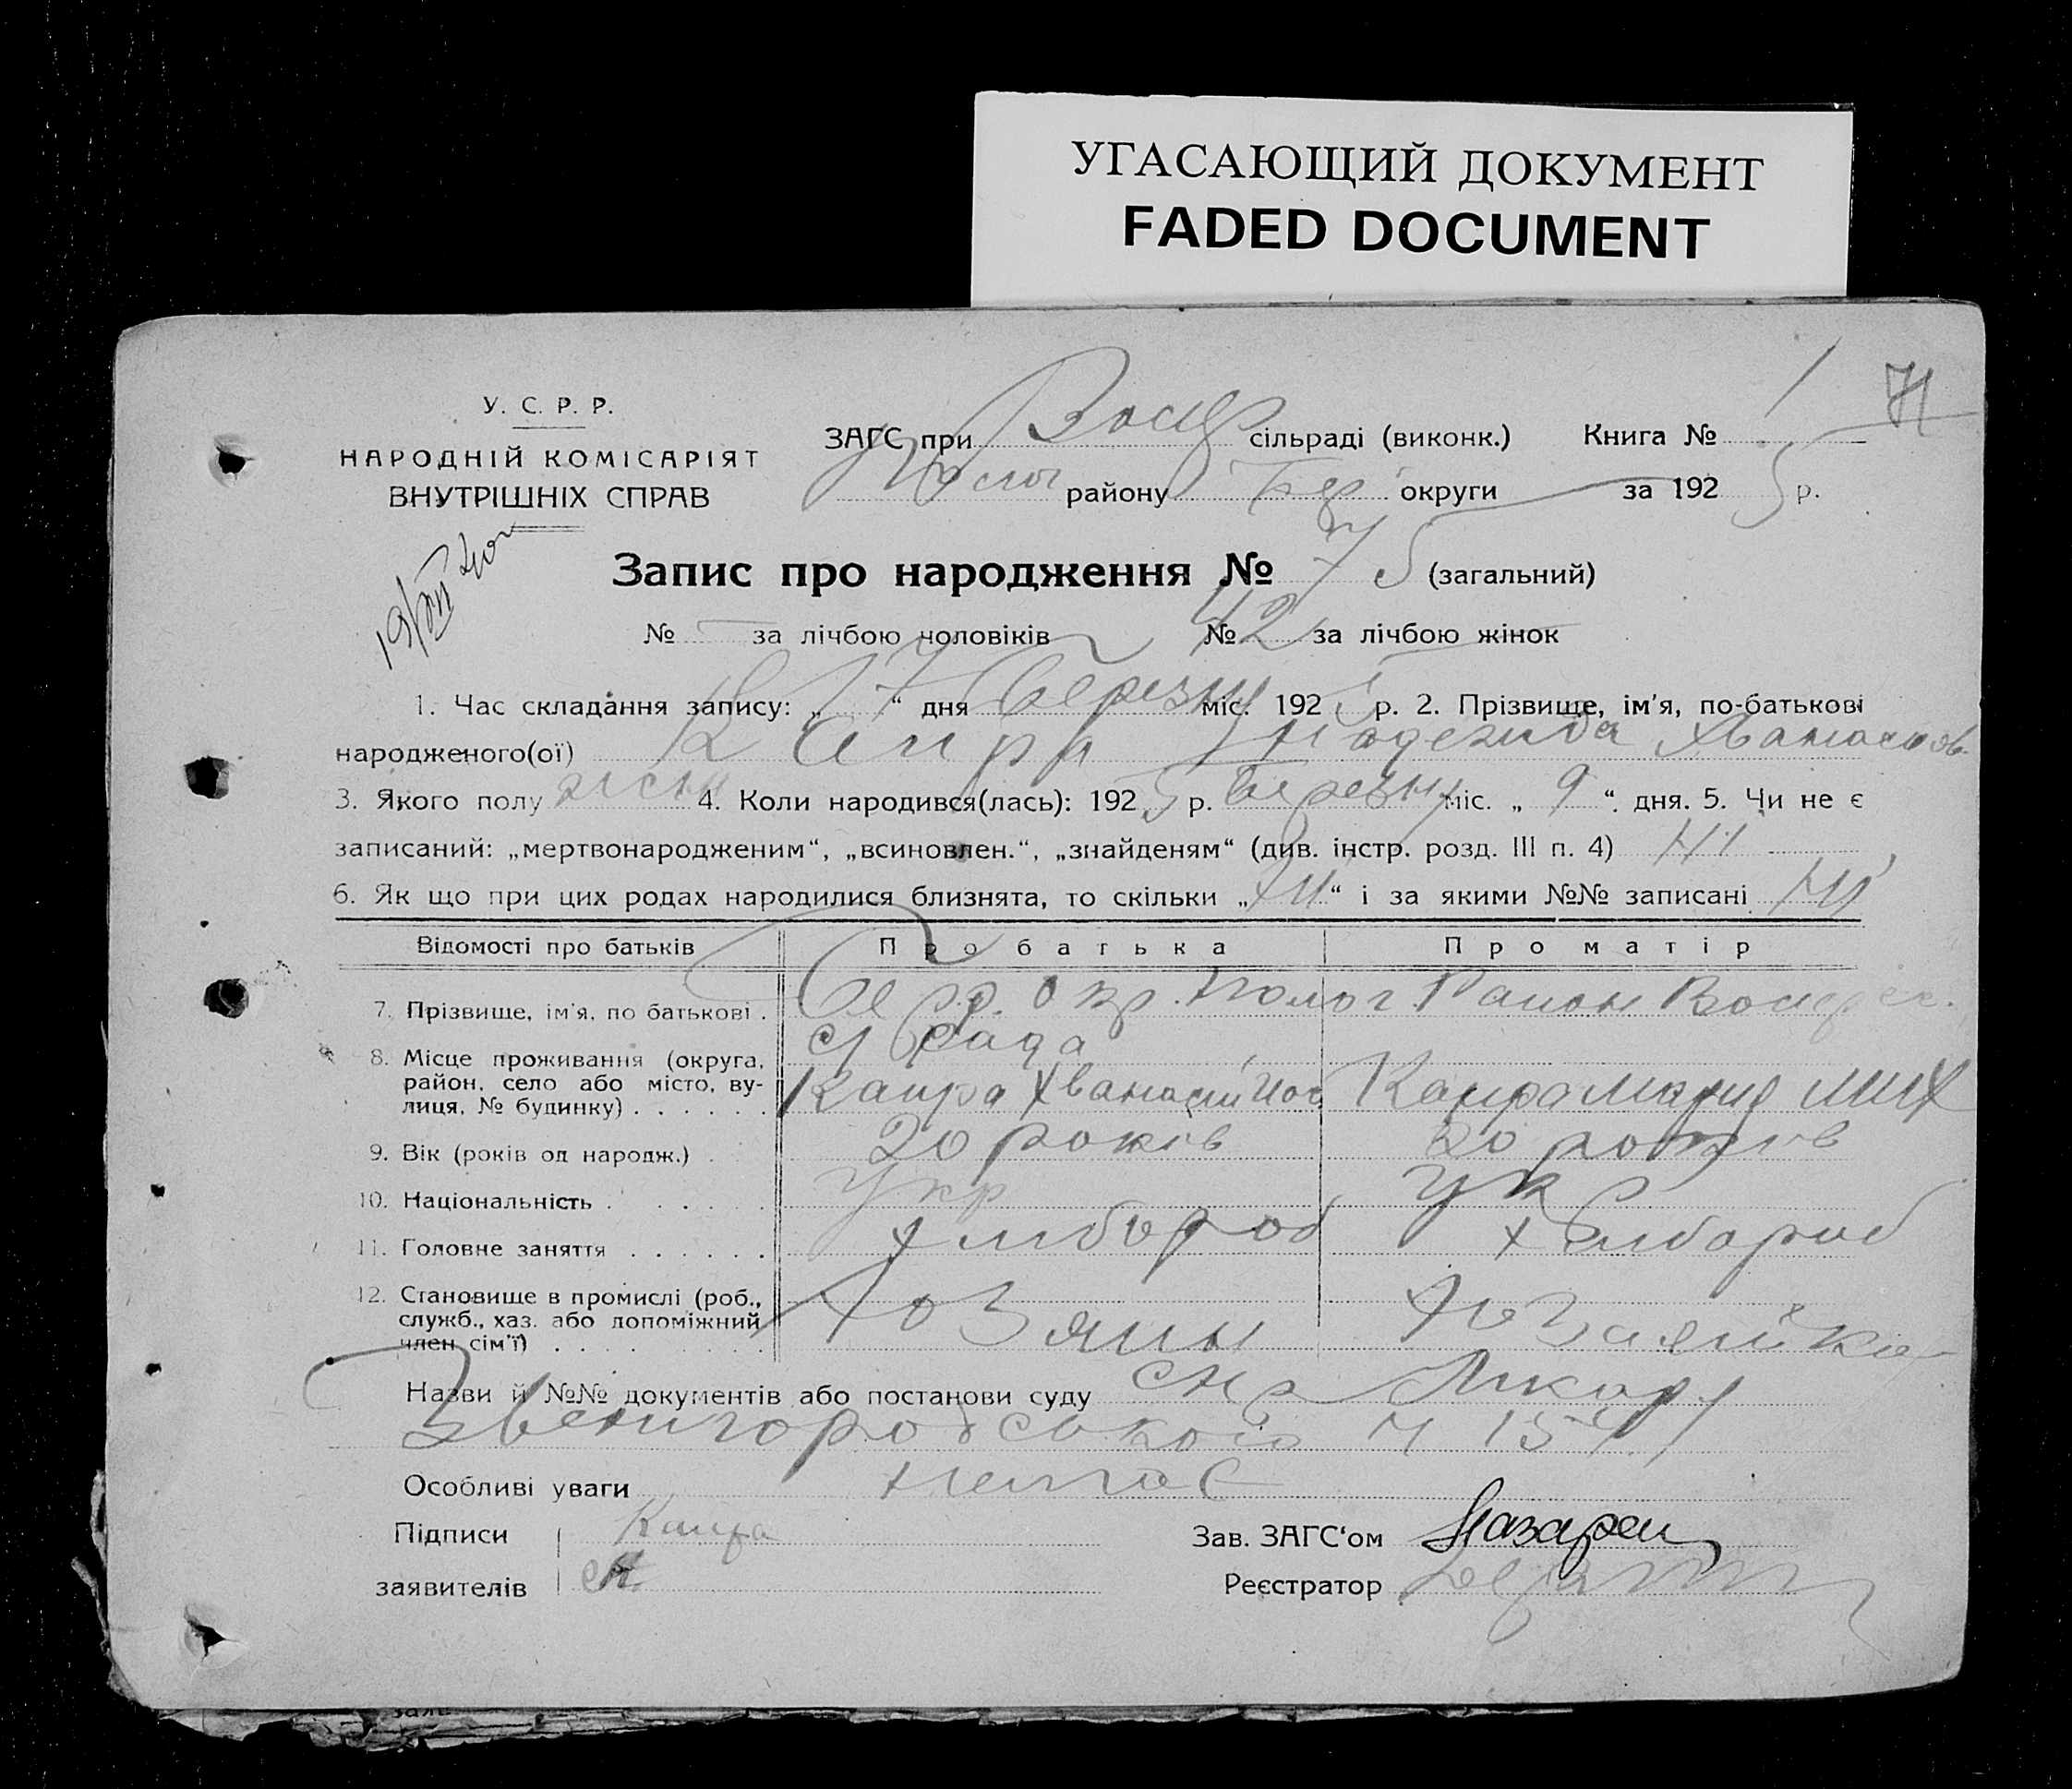 УГАСАЮЩИЙ ДОКУМЕНТ
FADED DOCUMENT
71
У. С. Р. Р.
НАРОДНІЙ КОМІСАРІЯТ
ВНУТРІШНІХ СПРАВ
ЗАГС при сільраді (виконк.) Книга № 1
району Бер округи за 192 5 р.
Запис про народження № 75 (загальний)
№ — за лічбою чоловіків № 42 за лічбою жінок
1. Час складання запису: „ 17 “ дня березня міс. 192 5 р. 2. Прізвище, ім'я, по-батькові
народженого(ої) Каира Надежда Хванасиов
3. Якого полу жен 4. Коли народився(лась): 192 5 р. Березня міс. „ 9 “ дня. 5. Чи не є
записаний: „мертвонародженим“, „всиновлен.“, „знайденям“ (див. інстр. розд. III п. 4) Ні
6. Як що при цих родах народилися близнята, то скільки „ Ні “ і за якими №№ записані Ні
Відомості про батьків Про батька Про матір
7. Прізвище, ім'я, по батькові . Бер. Окр. Полог Район
с рада
8. Місце проживання (округа,
район, село або місто, ву-
лиця, № будинку) . . . . . . Каира Хванасий Каира Мария Мих
9. Вік (років од народж.) . 20 років 20 років
10. Національність . . . . . . Укр Ук
11. Головне заняття . . . . . . Хлибороб Хлибороб
12. Становище в промислі (роб.,
служб., хаз. або допоміжний
член сім'ї) . . . . . . . . Хозяин Хозаяйка
Назви й №№ документів або постанови суду Ликаря
Звенигородського 154
Особливі уваги немає
Підписи Каира Зав. ЗАГС‘ом
заявителів Реєстратор